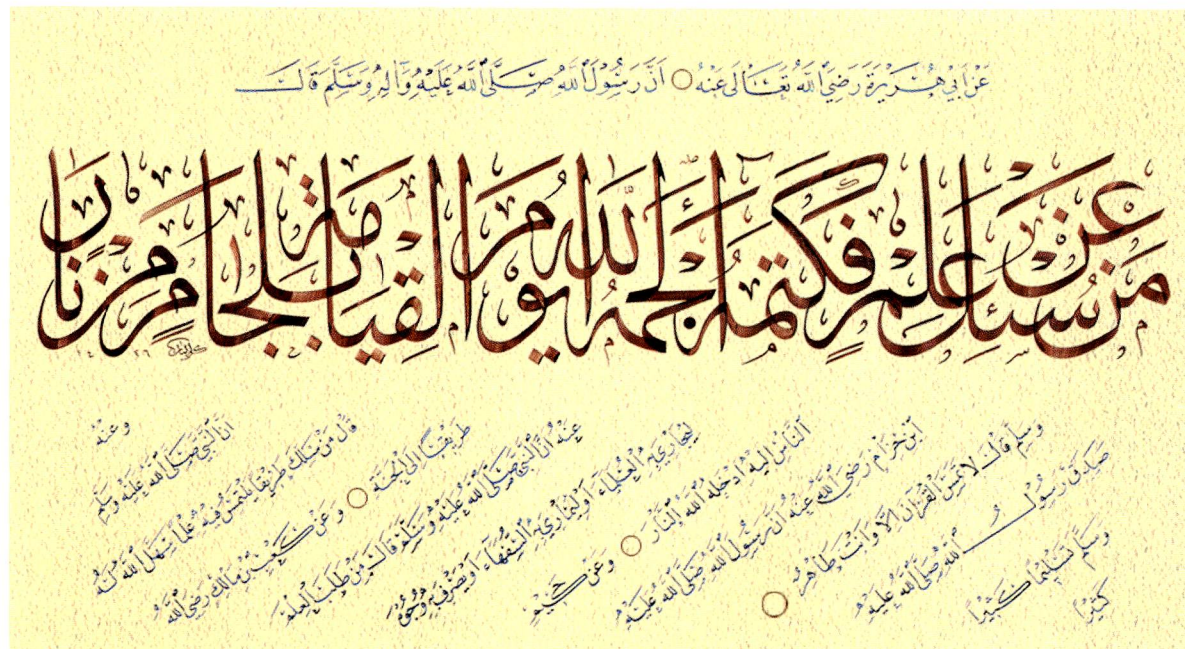 عَنْ اَبِي هُرَيْرَةَ رَضِيَ اللّٰهُ تَعَالَى عَنْهُ ○ اَنَّ رَسُولَ اللّٰهِ صَلَّى اللّٰهُ عَلَيْهِ وَاٰلِهِ وَسَلَّمَ قَالَ
مَنْ سُئِلَ عَنْ عِلْمٍ فَكَتَمَهُ أَلْجَمَهُ اللّٰهُ يَوْمَ الْقِيَامَةِ بِلِجَامٍ مِنْ نَارٍ
وعنه
ان النبي صلى الله عليه وسلم
قال من سلك طريقا يلتمس فيه علما سهل الله له
طريقا الى الجنة ○ وعن كعب بن مالك رضي الله
عنه ان النبي صلى الله عليه وسلم قال من طلب العلم
ليجاري به العلماء او ليماري به السفهاء او يصرف به وجوه
الناس اليه ادخله الله النار ○ وعن حكيم
ابن حزام رضي الله عنه ان رسول الله صلى الله عليه
وسلم قال لا تمس القران الا وانت طاهر ○
صدق رسول الله صلى الله عليه
وسلم تسليما كثيرا
كثيرا